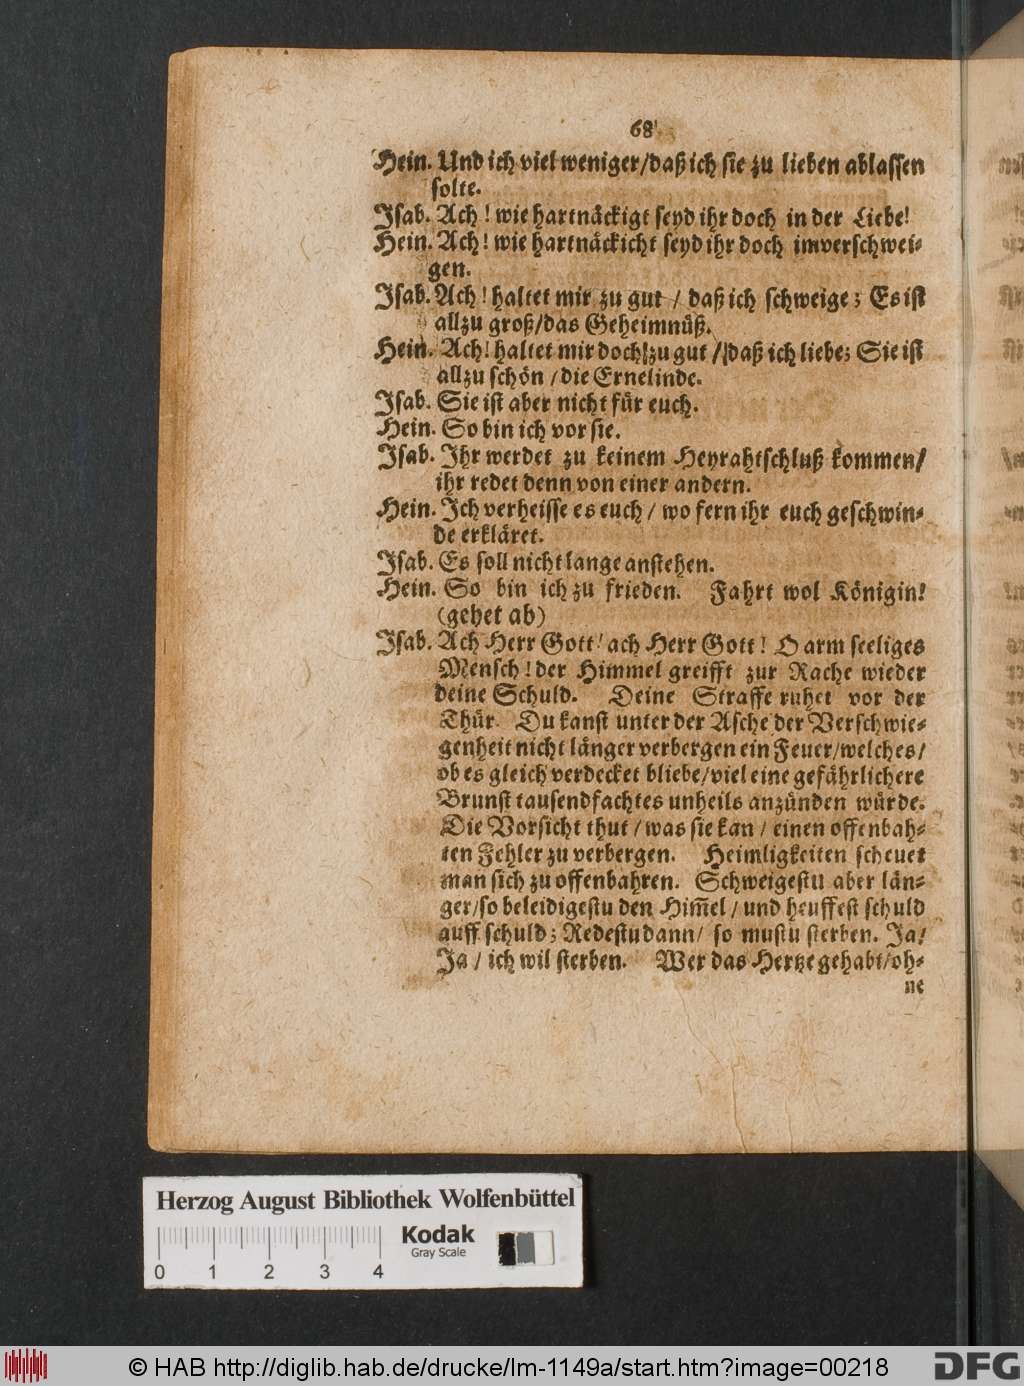 68
Hein. Und ich viel weniger/daß ich sie zu lieben ablassen
solte.
Isab. Ach! wie hartnäckigt seyd ihr doch in der Liebe!
Hein. Ach! wie hartnäckicht seyd ihr doch im verschwei-
gen.
Isab. Ach! haltet mir zu gut / daß ich schweige; Es ist
allzu groß/das Geheimnüß.
Hein. Ach! haltet mir doch zu gut / daß ich liebe; Sie ist
allzu schön / die Ernelinde.
Isab. Sie ist aber nicht für euch.
Hein. So bin ich vor sie.
Isab. Ihr werdet zu keinem Heyrahtschluß kommen/
ihr redet denn von einer andern.
Hein. Ich verheisse es euch / wo fern ihr euch geschwin-
de erkläret.
Isab. Es soll nicht lange anstehen.
Hein. So bin ich zu frieden. Fahrt wol Königin!
(gehet ab)
Isab. Ach Herr Gott! ach Herr Gott! O arm seeliges
Mensch! der Himmel greifft zur Rache wieder
deine Schuld. Deine Straffe ruhet vor der
Thür. Du kanst unter der Asche der Verschwie-
genheit nicht länger verbergen ein Feuer/welches/
ob es gleich verdecket bliebe/viel eine gefährlichere
Brunst tausendfachtes unheils anzünden würde.
Die Vorsicht thut / was sie kan / einen offenbah-
ren Fehler zu verbergen. Heimligkeiten scheuet
man sich zu offenbahren. Schweigestu aber län-
ger/so beleidigestu den Him̄el / und heuffest schuld
auff schuld; Redestu dann/ so mustu sterben. Ja/
Ja / ich wil sterben. Wer das Hertze gehabt/oh-
ne
Herzog August Bibliothek Wolfenbüttel
Kodak
Gray Scale
0 1 2 3 4
© HAB http://diglib.hab.de/drucke/lm-1149a/start.htm?image=00218
DFG